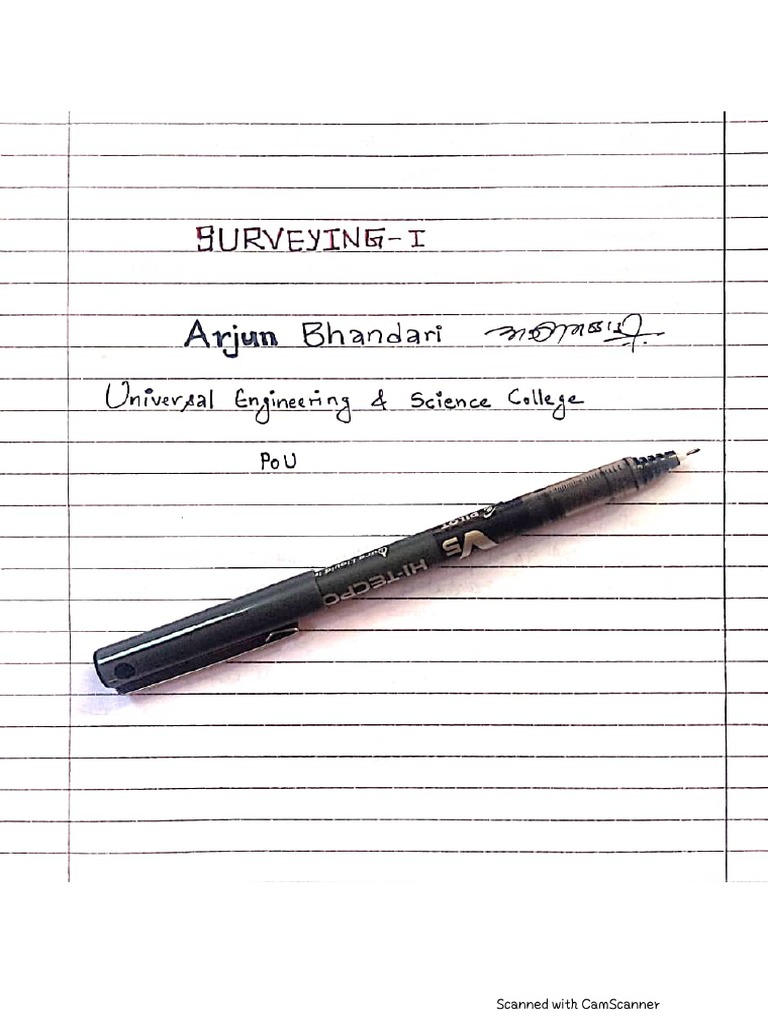 SURVEYING-I
Arjun Bhandari
Universal Engineering & Science College
PoU
PILOT
V5
HI-TECPO
Pure Liquid I
Scanned with CamScanner